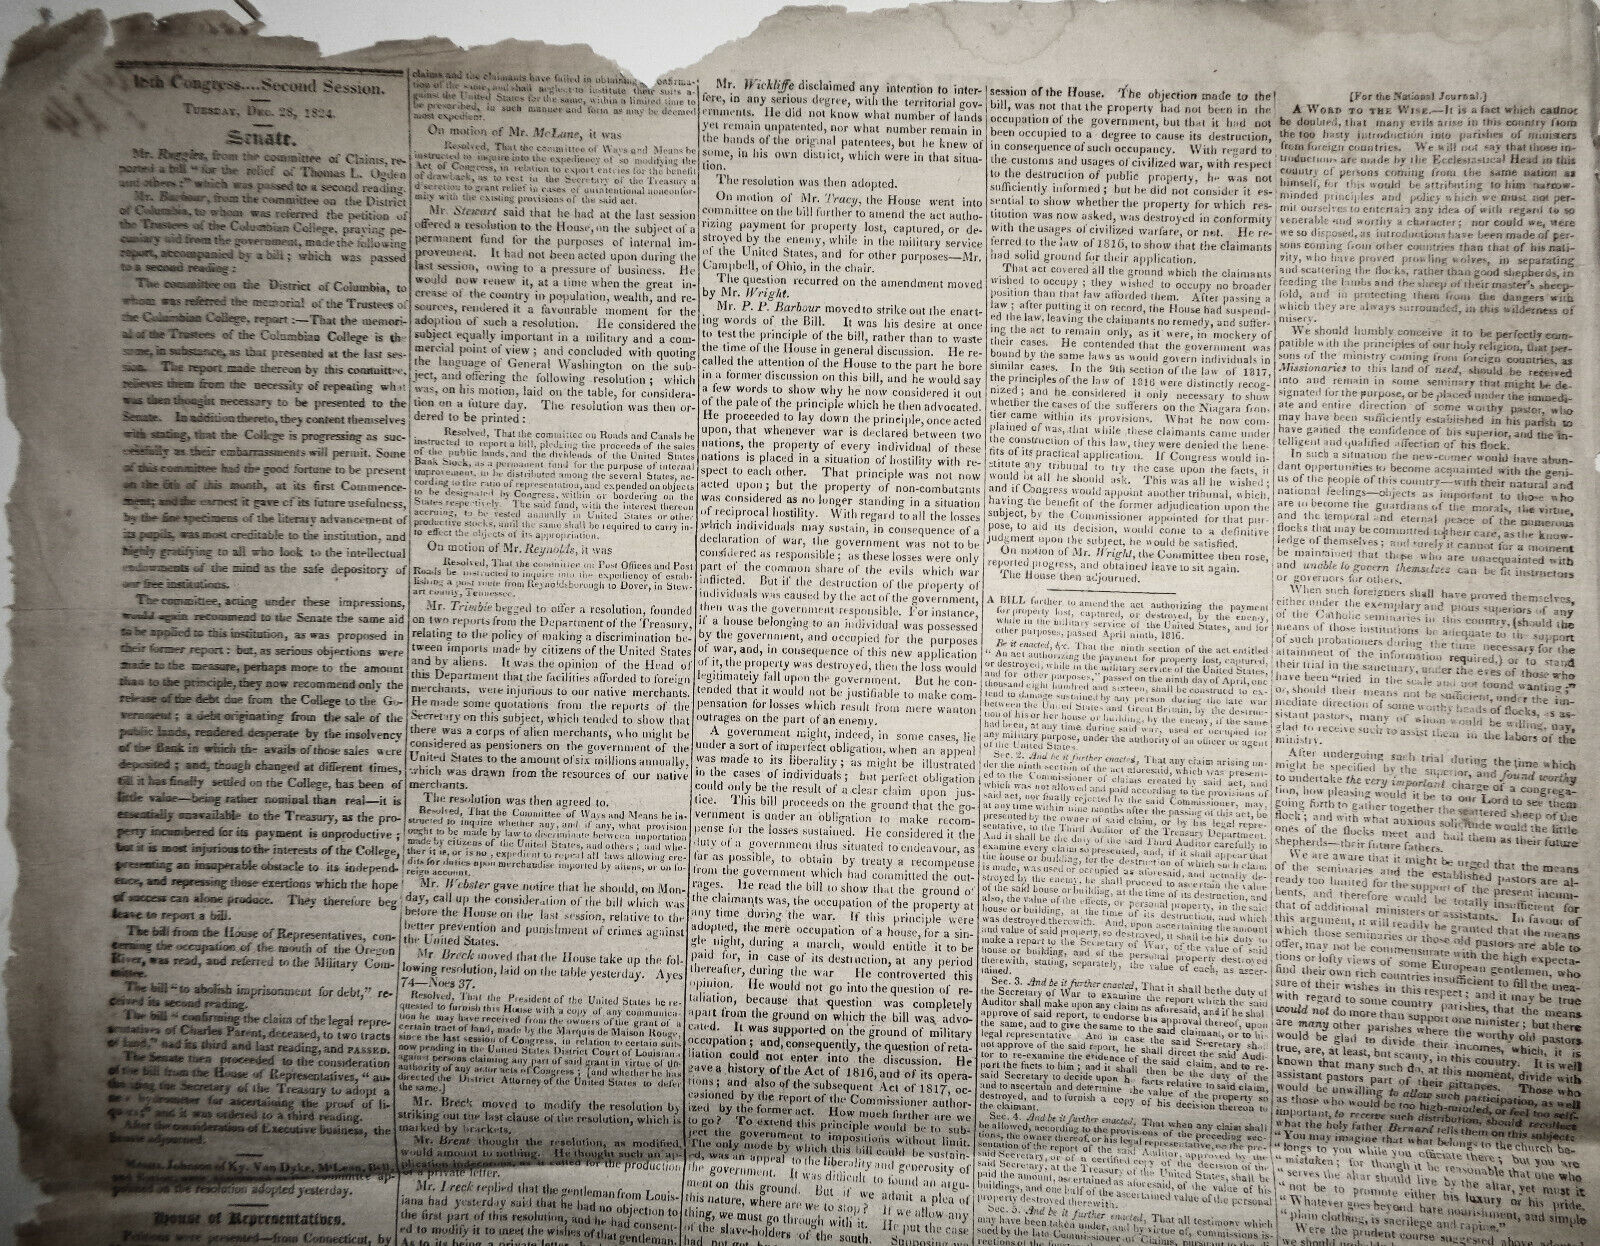 18th Congress....Second Session.
TUESDAY, DEC. 28, 1824.
Senate.
Mr. Ruggles, from the committee of Claims, re-
ported a bill "for the relief of Thomas L. Ogden
and others;" which was passed to a second reading.
Mr. Barbour, from the committee on the District
of Columbia, to whom was referred the petition of
the Trustees of the Columbian College, praying pe-
cuniary aid from the government, made the following
report, accompanied by a bill; which was passed
to a second reading:
The committee on the District of Columbia, to
whom was referred the memorial of the Trustees of
the Columbian College, report:—That the memori-
al of the Trustees of the Columbian College is the
same, in substance, as that presented at the last ses-
sion. The report made thereon by this committee,
relieves them from the necessity of repeating what
was then thought necessary to be presented to the
Senate. In addition thereto, they content themselves
with stating, that the College is progressing as suc-
cessfully as their embarrassments will permit. Some
of this committee had the good fortune to be present
on the 6th of this month, at its first Commence-
ment; and the earnest it gave of its future usefulness,
by the fine specimens of the literary advancement of
its pupils, was most creditable to the institution, and
highly gratifying to all who look to the intellectual
endowments of the mind as the safe depository of
our free institutions.
The committee, acting under these impressions,
would again recommend to the Senate the same aid
to be applied to this institution, as was proposed in
their former report: but, as serious objections were
made to the measure, perhaps more to the amount
than to the principle, they now recommend only the
release of the debt due from the College to the Go-
vernment; a debt originating from the sale of the
public lands, rendered desperate by the insolvency
of the Bank in which the avails of those sales were
deposited; and, though changed at different times,
till it has finally settled on the College, has been of
little value—being rather nominal than real—it is
essentially unavailable to the Treasury, as the pro-
perty incumbered for its payment is unproductive;
but it is most injurious to the interests of the College,
presenting an insuperable obstacle to its independ-
ence, and repressing those exertions which the hope
of success can alone produce. They therefore beg
leave to report a bill.
The bill from the House of Representatives, con-
cerning the occupation of the mouth of the Oregon
River, was read, and referred to the Military Com-
mittee.
The bill "to abolish imprisonment for debt," re-
ceived its second reading.
The bill "confirming the claim of the legal repre-
sentatives of Charles Parent, deceased, to two tracts
of land," had its third and last reading, and PASSED.
The Senate then proceeded to the consideration
of the bill from the House of Representatives, "au-
thorizing the Secretary of the Treasury to adopt a
new hydrometer for ascertaining the proof of li-
quors;" and it was ordered to a third reading.
After the consideration of Executive business, the
Senate adjourned.
Messrs. Johnson of Ky. Van Dyke, McLean, Bell,
pointed on the resolution adopted yesterday.
House of Representatives.
Petitions were presented—from Connecticut, by
claims and the claimants have failed in obtaining confirma-
tion of the same, and shall neglect to institute their suits a-
gainst the United States for the same, within a limited time to
be prescribed, in such manner and form as may be deemed
most expedient.
On motion of Mr. McLane, it was
Resolved, That the committee of Ways and Means be
instructed to inquire into the expediency of so modifying the
Act of Congress, in relation to export entries for the benefit
of drawback, as to vest in the Secretary of the Treasury a
discretion to grant relief in cases of unintentional nonconfor-
mity with the existing provisions of the said act.
Mr. Stewart said that he had at the last session
offered a resolution to the House, on the subject of a
permanent fund for the purposes of internal im-
provement. It had not been acted upon during the
last session, owing to a pressure of business. He
would now renew it, at a time when the great in-
crease of the country in population, wealth, and re-
sources, rendered it a favourable moment for the
adoption of such a resolution. He considered the
subject equally important in a military and a com-
mercial point of view; and concluded with quoting
the language of General Washington on the sub-
ject, and offering the following resolution; which
was, on his motion, laid on the table, for considera-
tion on a future day. The resolution was then or-
dered to be printed:
Resolved, That the committee on Roads and Canals be
instructed to report a bill, pledging the proceeds of the sales
of the public lands, and the dividends of the United States
Bank Stock, as a permanent fund for the purpose of internal
improvement, to be distributed among the several States, ac-
cording to the ratio of representation, and expended on objects
to be designated by Congress, within or bordering on the
States respectively. The said fund, with the interest thereon
accruing, to be vested annually in United States or other
productive stocks, until the same shall be required to carry in-
to effect the objects of its appropriation.
On motion of Mr. Reynolds, it was
Resolved, That the committee on Post Offices and Post
Roads be instructed to inquire into the expediency of estab-
lishing a post route from Reynoldsborough to Dover, in Stew-
art county, Tennessee.
Mr. Trimble begged to offer a resolution, founded
on two reports from the Department of the Treasury,
relating to the policy of making a discrimination be-
tween imports made by citizens of the United States
and by aliens. It was the opinion of the Head of
this Department that the facilities afforded to foreign
merchants, were injurious to our native merchants.
He made some quotations from the reports of the
Secretary on this subject, which tended to show that
there was a corps of alien merchants, who might be
considered as pensioners on the government of the
United States to the amount of six millions annually,
which was drawn from the resources of our native
merchants.
The resolution was then agreed to.
Resolved, That the Committee of Ways and Means be in-
structed to inquire whether any, and if any, what provision
ought to be made by law to discriminate between importation
made by citizens of the United States, and others; and whe-
ther it is, or is no, expedient to repeal all laws allowing cre-
dits for duties upon merchandise imported by aliens, or on fo-
reign account.
Mr. Webster gave notice that he should, on Mon-
day, call up the consideration of the bill which was
before the House on the last session, relative to the
better prevention and punishment of crimes against
the United States.
Mr. Breck moved that the House take up the fol-
lowing resolution, laid on the table yesterday. Ayes
74—Noes 37.
Resolved, That the President of the United States be re-
quested to furnish this House with a copy of any communica-
tion he may have received from the owners of the grant of a
certain tract of land, made by the Marquis de Maison Rouge,
since the last session of Congress, in relation to certain suits
now pending in the United States District Court of Louisiana
against persons claiming any part of said grant in virtue of the
authority of any act or acts of Congress; [and whether he has
directed the District Attorney of the United States to defer
the same.]
Mr. Breck moved to modify the resolution by
striking out the last clause of the resolution, which is
marked by brackets.
Mr. Brent thought the resolution, as modified,
would amount to nothing. He thought such an ap-
plication indecorous, as it called for the production
of a private letter.
Mr. Breck replied that the gentleman from Louis-
iana had yesterday said that he had no objection to
the first part of this resolution, and he had consent-
ed to modify it to meet the wishes of that gentleman.
As to its being a private letter, he
Mr. Wickliffe disclaimed any intention to inter-
fere, in any serious degree, with the territorial gov-
ernments. He did not know what number of lands
yet remain unpatented, nor what number remain in
the hands of the original patentees, but he knew of
some, in his own district, which were in that situa-
tion.
The resolution was then adopted.
On motion of Mr. Tracy, the House went into
committee on the bill further to amend the act autho-
rizing payment for property lost, captured, or de-
stroyed by the enemy, while in the military service
of the United States, and for other purposes—Mr.
Campbell, of Ohio, in the chair.
The question recurred on the amendment moved
by Mr. Wright.
Mr. P. P. Barbour moved to strike out the enact-
ing words of the Bill. It was his desire at once
to test the principle of the bill, rather than to waste
the time of the House in general discussion. He re-
called the attention of the House to the part he bore
in a former discussion on this bill, and he would say
a few words to show why he now considered it out
of the pale of the principle which he then advocated.
He proceeded to lay down the principle, once acted
upon, that whenever war is declared between two
nations, the property of every individual of these
nations is placed in a situation of hostility with re-
spect to each other. That principle was not now
acted upon; but the property of non-combatants
was considered as no longer standing in a situation
of reciprocal hostility. With regard to all the losses
which individuals may sustain, in consequence of a
declaration of war, the government was not to be
considered as responsible; as these losses were only
part of the common share of the evils which war
inflicted. But if the destruction of the property of
individuals was caused by the act of the government,
then was the government responsible. For instance,
if a house belonging to an individual was possessed
by the government, and occupied for the purposes
of war, and, in consequence of this new application
of it, the property was destroyed, then the loss would
legitimately fall upon the government. But he con-
tended that it would not be justifiable to make com-
pensation for losses which result from mere wanton
outrages on the part of an enemy.
A government might, indeed, in some cases, lie
under a sort of imperfect obligation, when an appeal
was made to its liberality; as might be illustrated
in the cases of individuals; but perfect obligation
could only be the result of a clear claim upon jus-
tice. This bill proceeds on the ground that the go-
vernment is under an obligation to make recom-
pense for the losses sustained. He considered it the
duty of a government thus situated to endeavour, as
far as possible, to obtain by treaty a recompense
from the government which had committed the out-
rages. He read the bill to show that the ground of
the claimants was, the occupation of the property at
any time during the war. If this principle were
adopted, the mere occupation of a house, for a sin-
gle night, during a march, would entitle it to be
paid for, in case of its destruction, at any period
thereafter, during the war He controverted this
opinion. He would not go into the question of re-
taliation, because that question was completely
apart from the ground on which the bill was advo-
cated. It was supported on the ground of military
occupation; and, consequently, the question of reta-
liation could not enter into the discussion. He
gave a history of the Act of 1816, and of its opera-
tions; and also of the subsequent Act of 1817, oc-
casioned by the report of the Commissioner author-
ized by the former act. How much further are we
to go? To extend this principle would be to sub-
ject the government to impositions without limit.
The only mode by which this bill could be sustain-
ed, was an appeal to the liberality and generosity of
the government. It was difficult to found an argu-
ment on this ground. But if we admit a plea of
this nature, where are we to stop? If we allow any
thing, we must go through with it. He put the case
of the slave-holders of the south. Supposing
session of the House. The objection made to the
bill, was not that the property had not been in the
occupation of the government, but that it had not
been occupied to a degree to cause its destruction,
in consequence of such occupancy. With regard to
the customs and usages of civilized war, with respect
to the destruction of public property, he was not
sufficiently informed; but he did not consider it es-
sential to show whether the property for which res-
titution was now asked, was destroyed in conformity
with the usages of civilized warfare, or not. He re-
ferred to the law of 1816, to show that the claimants
had solid ground for their application.
That act covered all the ground which the claimants
wished to occupy; they wished to occupy no broader
position than that law afforded them. After passing a
law; after putting it on record, the House had suspend-
ed the law, leaving the claimants no remedy, and suffer-
ing the act to remain only, as it were, in mockery of
their cases. He contended that the government was
bound by the same laws as would govern individuals in
similar cases. In the 9th section of the law of 1817,
the principles of the law of 1816 were distinctly recog-
nized; and he considered it only necessary to show
whether the cases of the sufferers on the Niagara fron-
tier came within its provisions. What he now com-
plained of was, that while these claimants came under
the construction of this law, they were denied the bene-
fits of its practical application. If Congress would in-
stitute any tribunal to try the case upon the facts, it
would be all he should ask. This was all he wished;
and if Congress would appoint another tribunal, which,
having the benefit of the former adjudication upon the
subject, by the Commissioner appointed for that pur-
pose, to aid its decision, would come to a definitive
judgment upon the subject, he would be satisfied.
On motion of Mr. Wright, the Committee then rose,
reported progress, and obtained leave to sit again.
The House then adjourned.
A BILL further to amend the act authorizing the payment
for property lost, captured, or destroyed by the enemy,
while in the military service of the United States, and for
other purposes, passed April ninth, 1816.
Be it enacted, &c. That the ninth section of the act entitled
"An act authorizing the payment for property lost, captured,
or destroyed, while in the military service of the United States,
and for other purposes," passed on the ninth day of April, one
thousand eight hundred and sixteen, shall be construed to ex-
tend to damage sustained by any person during the late war
between the United States and Great Britain, by the destruc-
tion of his or her house or building, by the enemy, if the same
had been, at any time during said war, used or occupied for
any military purpose, under the authority of an officer or agent
of the United States.
Sec. 2. And be it further enacted, That any claim arising un-
der the ninth section of the act aforesaid, which was present-
ed to the Commissioner of claims created by said act, and
which was not allowed and paid according to the provisions of
said act, nor finally rejected by the said Commissioner, may,
at any time within nine months after the passing of this act, be
presented by the owner of said claim, or by his legal repre-
sentative, to the Third Auditor of the Treasury Department.
And it shall be the duty of the said Third Auditor carefully to
examine every claim so presented, and, if it shall appear that
the house or building, for the destruction of which such claim
is made, was used or occupied as aforesaid, and actually de-
stroyed by the enemy, he shall proceed to ascertain the value
of the said house or building, at the time of its destruction, and
also, the value of the effects, or personal property, in the said
house or building, at the time of its destruction, and which
was destroyed therewith. And, upon ascertaining the amount
and value of said property, so destroyed, it shall be his duty to
make a report to the Secretary of War, of the value of said
house or building, and of the personal property destroyed
therewith, stating, separately, the value of each, as ascer-
tained.
Sec. 3. And be it further enacted, That it shall be the duty of
the Secretary of War to examine the report which the said
Auditor shall make upon any claim as aforesaid, and if he shall
approve of said report, to endorse his approval thereof, upon
the same, and to give the same to the said claimant, or to his
legal representative. And in case the said Secretary shall
not approve of the said report, he shall direct the said Audi-
tor to re-examine the evidence of the said claim, and to re-
port the facts to him; and it shall then be the duty of the
said Secretary to decide upon the facts relative to said claim,
and to ascertain and determine the value of the property so
destroyed, and to furnish a copy of his decision thereon to
the claimant.
Sec. 4. And be it further enacted, That when any claim shall
be allowed, according to the provisions of the preceding sec-
tions, the owner thereof, or his legal representative, on the pre-
sentation of the report of said Auditor, approved by the
said Secretary, or of a certified copy of the decision of the
said Secretary, at the Treasury of the United States, shall be
paid the amount, ascertained as aforesaid, of the value of his
buildings, and one half of the ascertained value of the personal
property destroyed therewith.
Sec. 5. And be it further enacted, That all testimony which
may have been taken under, and by virtue of, commissions is-
sued by the late Commissioner of Claims, pursuant to the di-
[For the National Journal.]
A WORD TO THE WISE.—It is a fact which cannot
be doubted, that many evils arise in this country from
the too hasty introduction into parishes of ministers
from foreign countries. We will not say that those in-
troductions are made by the Ecclesiastical Head in this
country of persons coming from the same nation as
himself, for this would be attributing to him narrow-
minded principles and policy which we must not per-
mit ourselves to entertain any idea of with regard to so
venerable and worthy a character; nor could we, were
we so disposed, as introductions have been made of per-
sons coming from other countries than that of his nati-
vity, who have proved prowling wolves, in separating
and scattering the flocks, rather than good shepherds, in
feeding the lambs and the sheep of their master's sheep-
fold, and in protecting them from the dangers with
which they are always surrounded, in this wilderness of
misery.
We should humbly conceive it to be perfectly com-
patible with the principles of our holy religion, that per-
sons of the ministry coming from foreign countries, as
Missionaries to this land of need, should be received
into and remain in some seminary that might be de-
signated for the purpose, or be placed under the immedi-
ate and entire direction of some worthy pastor, who
may have been sufficiently established in his parish to
have gained the confidence of his superior, and the in-
telligent and qualified affection of his flock.
In such a situation the new-comer would have abun-
dant opportunities to become acquainted with the geni-
us of the people of this country—with their natural and
national feelings—objects as important to those who
are to become the guardians of the morals, the virtue,
and the temporal and eternal peace of the numerous
flocks that may be committed to their care, as the know-
ledge of themselves; and surely it cannot for a moment
be maintained that those who are unacquainted with
and unable to govern themselves can be fit instructors
or governors for others.
When such foreigners shall have proved themselves,
either under the exemplary and pious superiors of any
of the Catholic seminaries in this country, (should the
means of those institutions be adequate to the support
of such probationers during the time necessary for the
attainment of the information required,) or to stand
their trial in the sanctuary, under the eyes of those who
have been "tried in the scale and not found wanting;"
or, should their means not be sufficient, under the im-
mediate direction of some worthy heads of flocks, as as-
sistant pastors, many of whom would be willing, nay,
glad to receive such to assist them in the labors of the
ministry.
After undergoing such trial during the time which
might be specified by the superior, and found worthy
to undertake the very important charge of a congrega-
tion, how pleasing would it be to our Lord to see them
going forth to gather together the scattered sheep of the
flock; and with what anxious solicitude would the little
ones of the flocks meet and hail them as their future
shepherds—their future fathers.
We are aware that it might be urged that the means
of the seminaries and the established pastors are al-
ready too limited for the support of the present incum-
bents, and therefore would be totally insufficient for
that of additional ministers or assistants. In favour of
this argument, it will readily be granted that the means
which those seminaries or those old pastors are able to
offer, may not be commensurate with the high expecta-
tions or lofty views of some European gentlemen, who
find their own rich countries insufficient to fill the mea-
sure of their wishes in this respect; and it may be true
with regard to some country parishes, that the means
would not do more than support one minister; but there
are many other parishes where the worthy old pastors
would be glad to divide their incomes, which, it is
true, are, at least, but scanty, in this country. It is well
known that many such do, at this moment, divide with
assistant pastors part of their pittances. Those who
would be unwilling to allow such participation, as well
as those who would be too high-minded, or feel too self-
important, to receive such distribution, should recollect
what the holy father Bernard tells them on this subject:
"You may imagine that what belongs to the church be-
"longs to you while you officiate there; but you are
"mistaken; for though it be reasonable that one who
"serves the altar should live by the altar, yet must it
"not be to promote either his luxury or his pride.
"Whatever goes beyond bare nourishment, and simple
"plain clothing, is sacrilege and rapine."
Were the prudent course suggested above